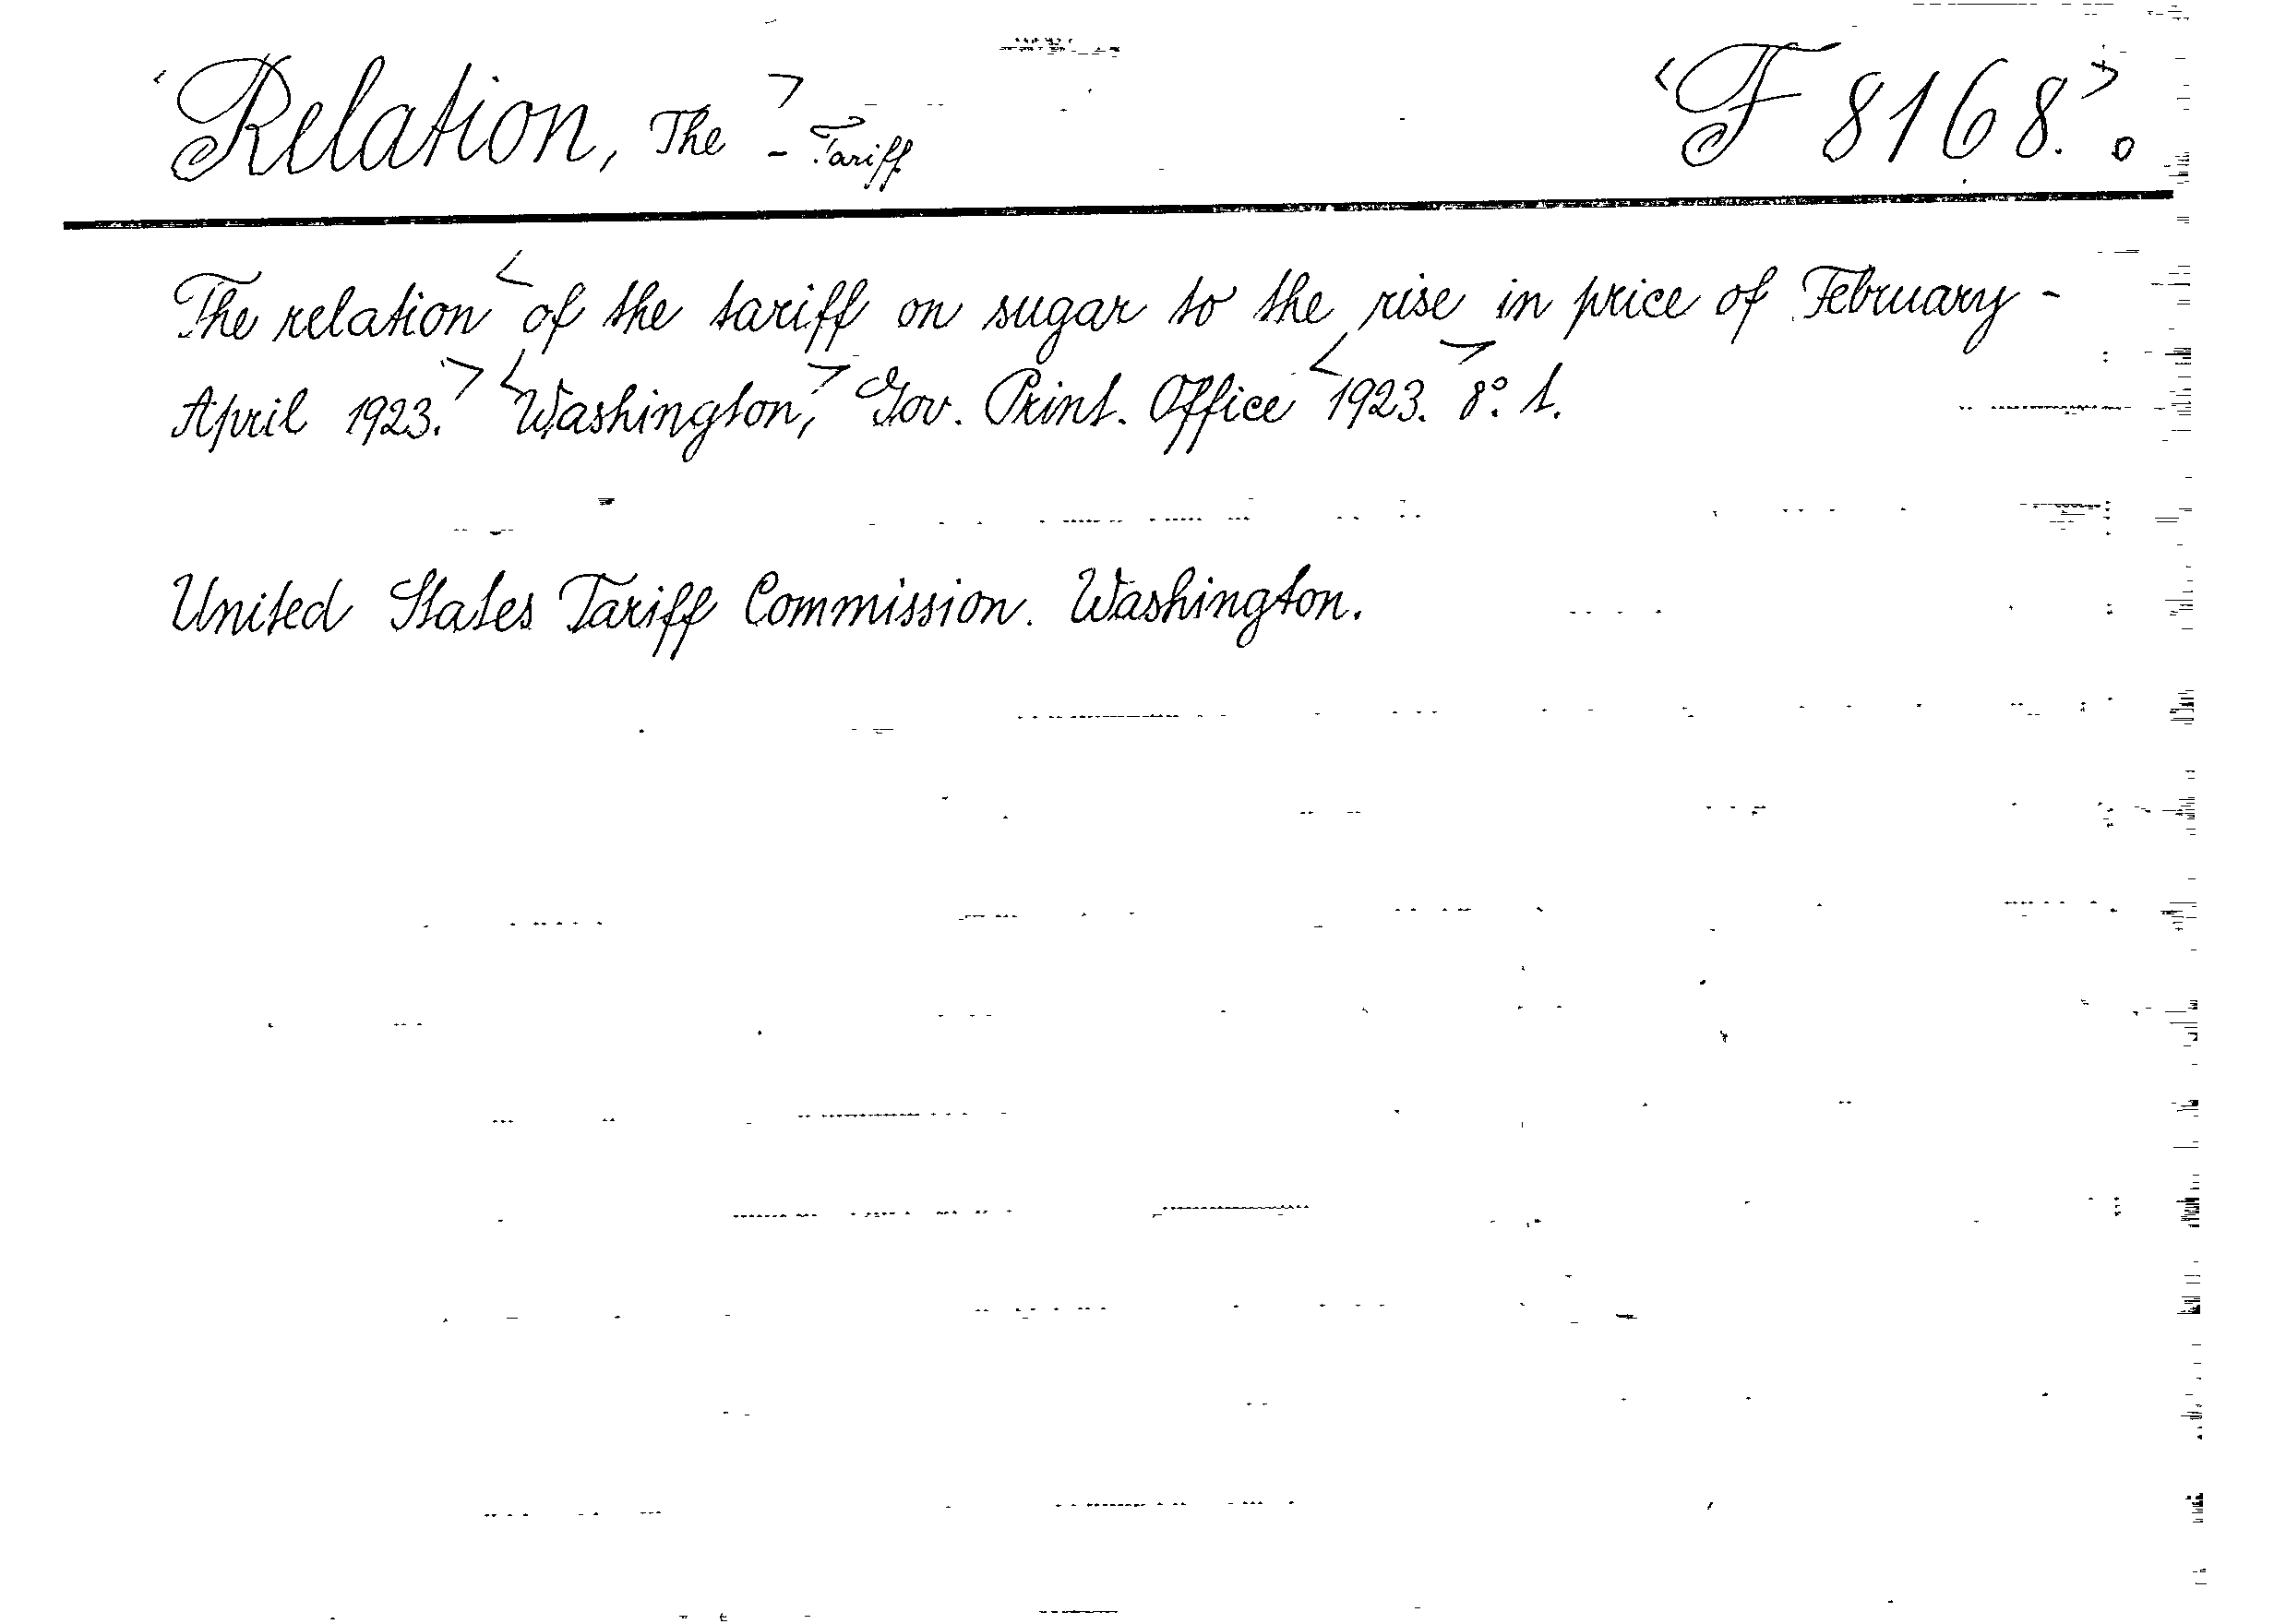 <Relation, The> - Tariff <F 8168.> o
The relation <of the tariff on sugar to the rise in price of February -
April 1923.> <Washington,> Gov. Print. Office <1923.> 8°. t.
United States Tariff Commission. Washington.